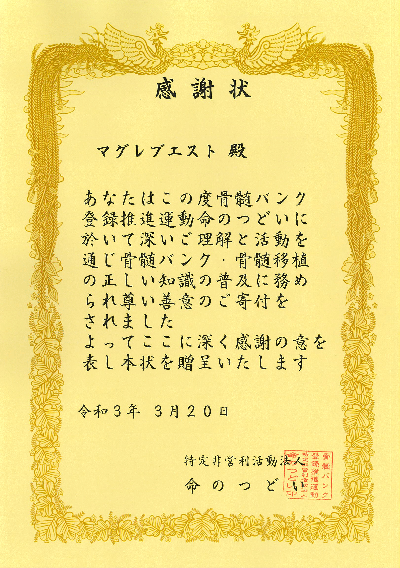 感謝状
マグレブエスト 殿
あなたはこの度骨髄バンク
登録推進運動命のつどいに
於いて深いご理解と活動を
通じ骨髄バンク・骨髄移植
の正しい知識の普及に務め
られ尊い善意のご寄付を
されました
よってここに深く感謝の意を
表し本状を贈呈いたします
令和3年 3月20日
特定非営利活動法人
命のつどい